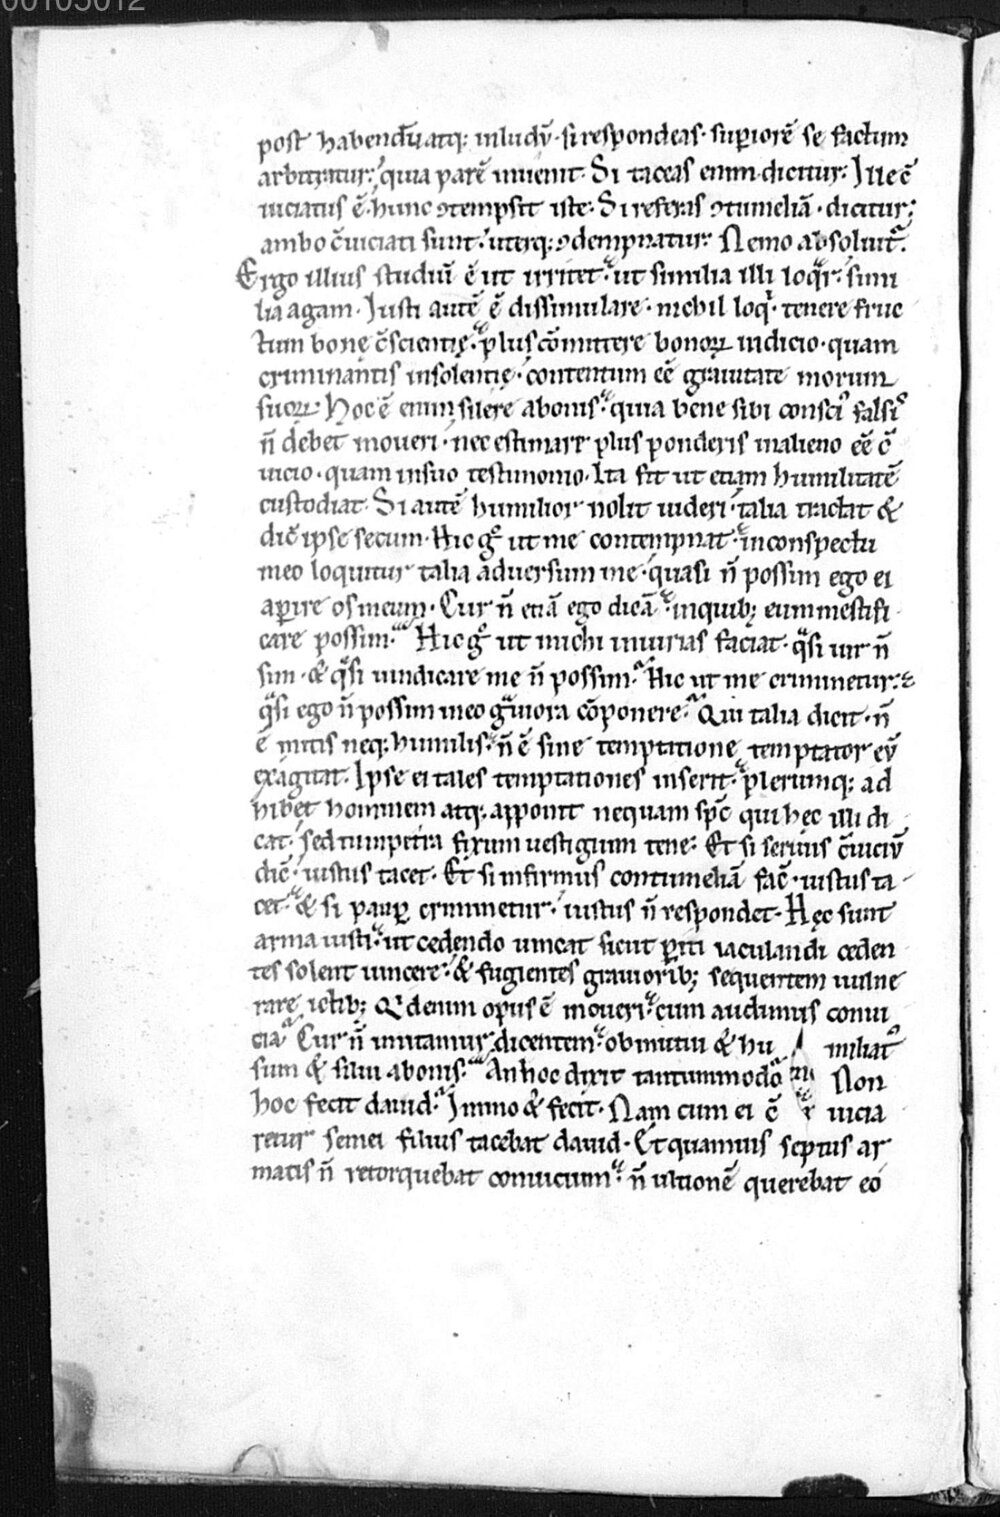 00105012
post habendū atq; inludū· si respondeas· supiorē se factum
arbitratur· quia parē inuenit· Si taceas enim dicitur· Ille c̄
uiciatus ē· hunc ꝯtempsit iste· Si referas ꝯtumeliā· dicitur·
ambo c̄uiciati sunt· uterq; ꝯdempnatur· Nemo absoluit᷑
Ergo illius studiū ē ut irritet· ut similia illi loqͣr· simi
lia agam· Iusti autē ē dissimulare· nichil loqͥ· tenere fruc
tum bonę c̄scientię· plus cōmittere bonoꝝ iudicio· quam
criminantis insolentię· contentum eē grauitate morum
suoꝝ· Hoc ē enim silere a bonis· quia bene sibi consciꝰ falsiꝰ
n̄ debet moueri· nec estimare plus ponderis in alieno eē c̄
uicio· quam in suo testimonio· Ita fit ut etiam humilitatē
custodiat· Si autē humilior nolit uideri· talia tractat &
dic̄ ipse secum· Hic gͦ ut me contempnat· in conspectu
meo loquitur talia aduersum me· quasi n̄ possim ego ei
aperire os meum· Cur n̄ etiā ego dicā· in quib; eum mestifi
care possim· Hic gͦ ut michi iniurias faciat· qͣsi uir n̄
sim· & qͣsi uindicare me n̄ possim· Hic ut me criminetur· &
qͣsi ego n̄ possim in eo gͣuiora cōponere· Qui talia dicit· n̄
ē mitis neq; humilis· n̄ ē sine temptatione temptator eū
exagitat· Ipse ei tales temptationes inserit· plerumq; ad
hibet hominem atq; apponit nequam spc̄ qui hęc illi di
cat· sed tu in petra fixum uestigium tene· Et si seruus c̄uiciū
dic̄· iustus tacet· Et si infirmus contumeliā fac̄· iustus ta
cet· & si paup̱ criminetur· iustus n̄ respondet· Hęc sunt
arma iusti· ut cedendo uincat sicut p̱iti iaculandi ceden
tes solent uincere· & fugientes grauiorib; sequentem uulne
rare ictib; Qͥd enim opus ē moueri· cum audimus conui
cia· Cur n̄ imitamur dicentem· obmutui & hu miliatꝰ
sum & silui a bonis· An hoc dixit tantummodo Non
hoc fecit dauid· Immo & fecit· Nam cum ei c̄ uicia
retur semei filius tacebat dauid· Et quamuis septus ar
matis n̄ retorquebat conuicium· n̄ ultionē querebat eo